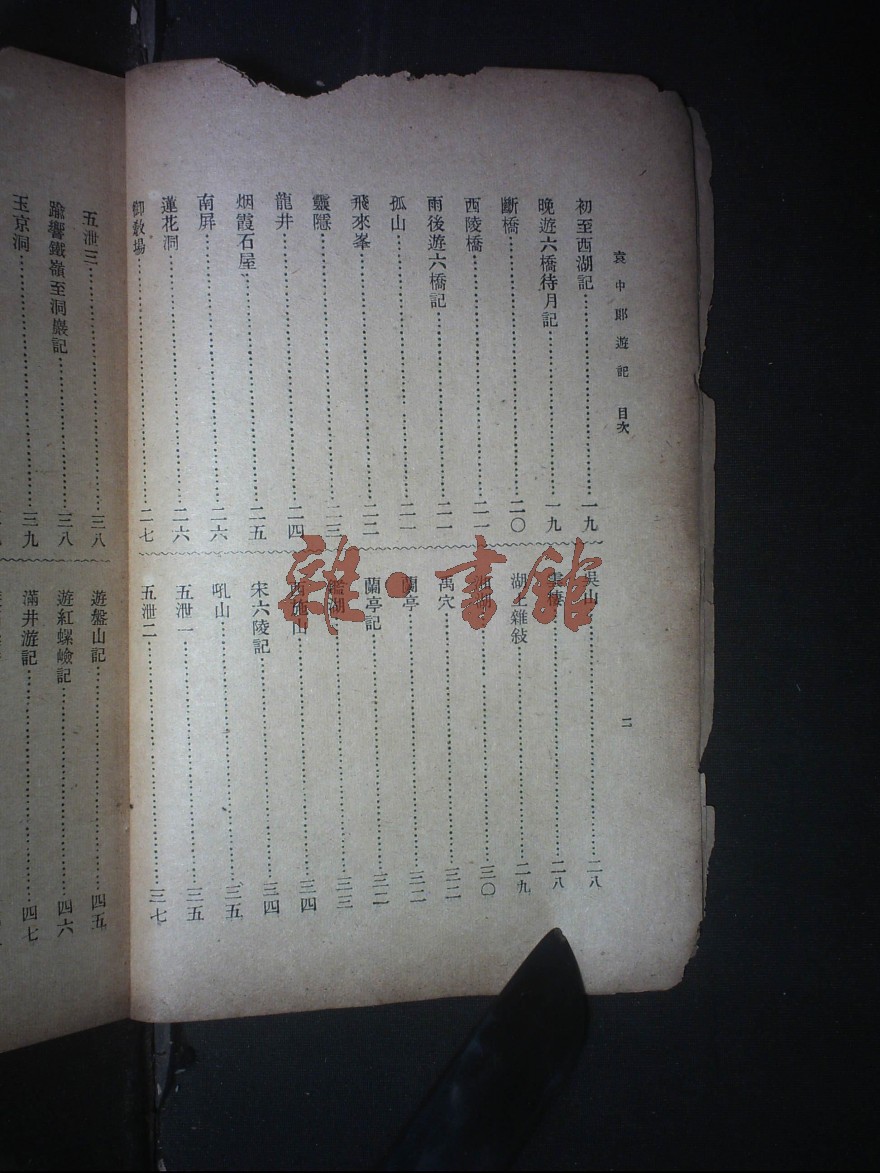 袁中郎遊記 目次
二
初至西湖記……一九
晚遊六橋待月記……一九
斷橋……二〇
西陵橋……二一
雨後遊六橋記……二一
孤山……二一
飛來峯……二二
靈隱……二三
龍井……二四
烟霞石屋……二五
南屏……二六
蓮花洞……二六
御教場……二七
吳山……二八
雲棲……二八
湖上雜敍……二九
三〇
禹穴……三二
蘭亭……三二
蘭亭記……三二
鑑湖……三三
西施山……三四
宋六陵記……三四
吼山……三五
五泄一……三五
五泄二……三七
五泄三……三八
踰響鐵嶺至洞巖記……三八
玉京洞……三九
遊盤山記……四五
遊紅螺嶮記……四六
滿井游記……四七
雜·書館